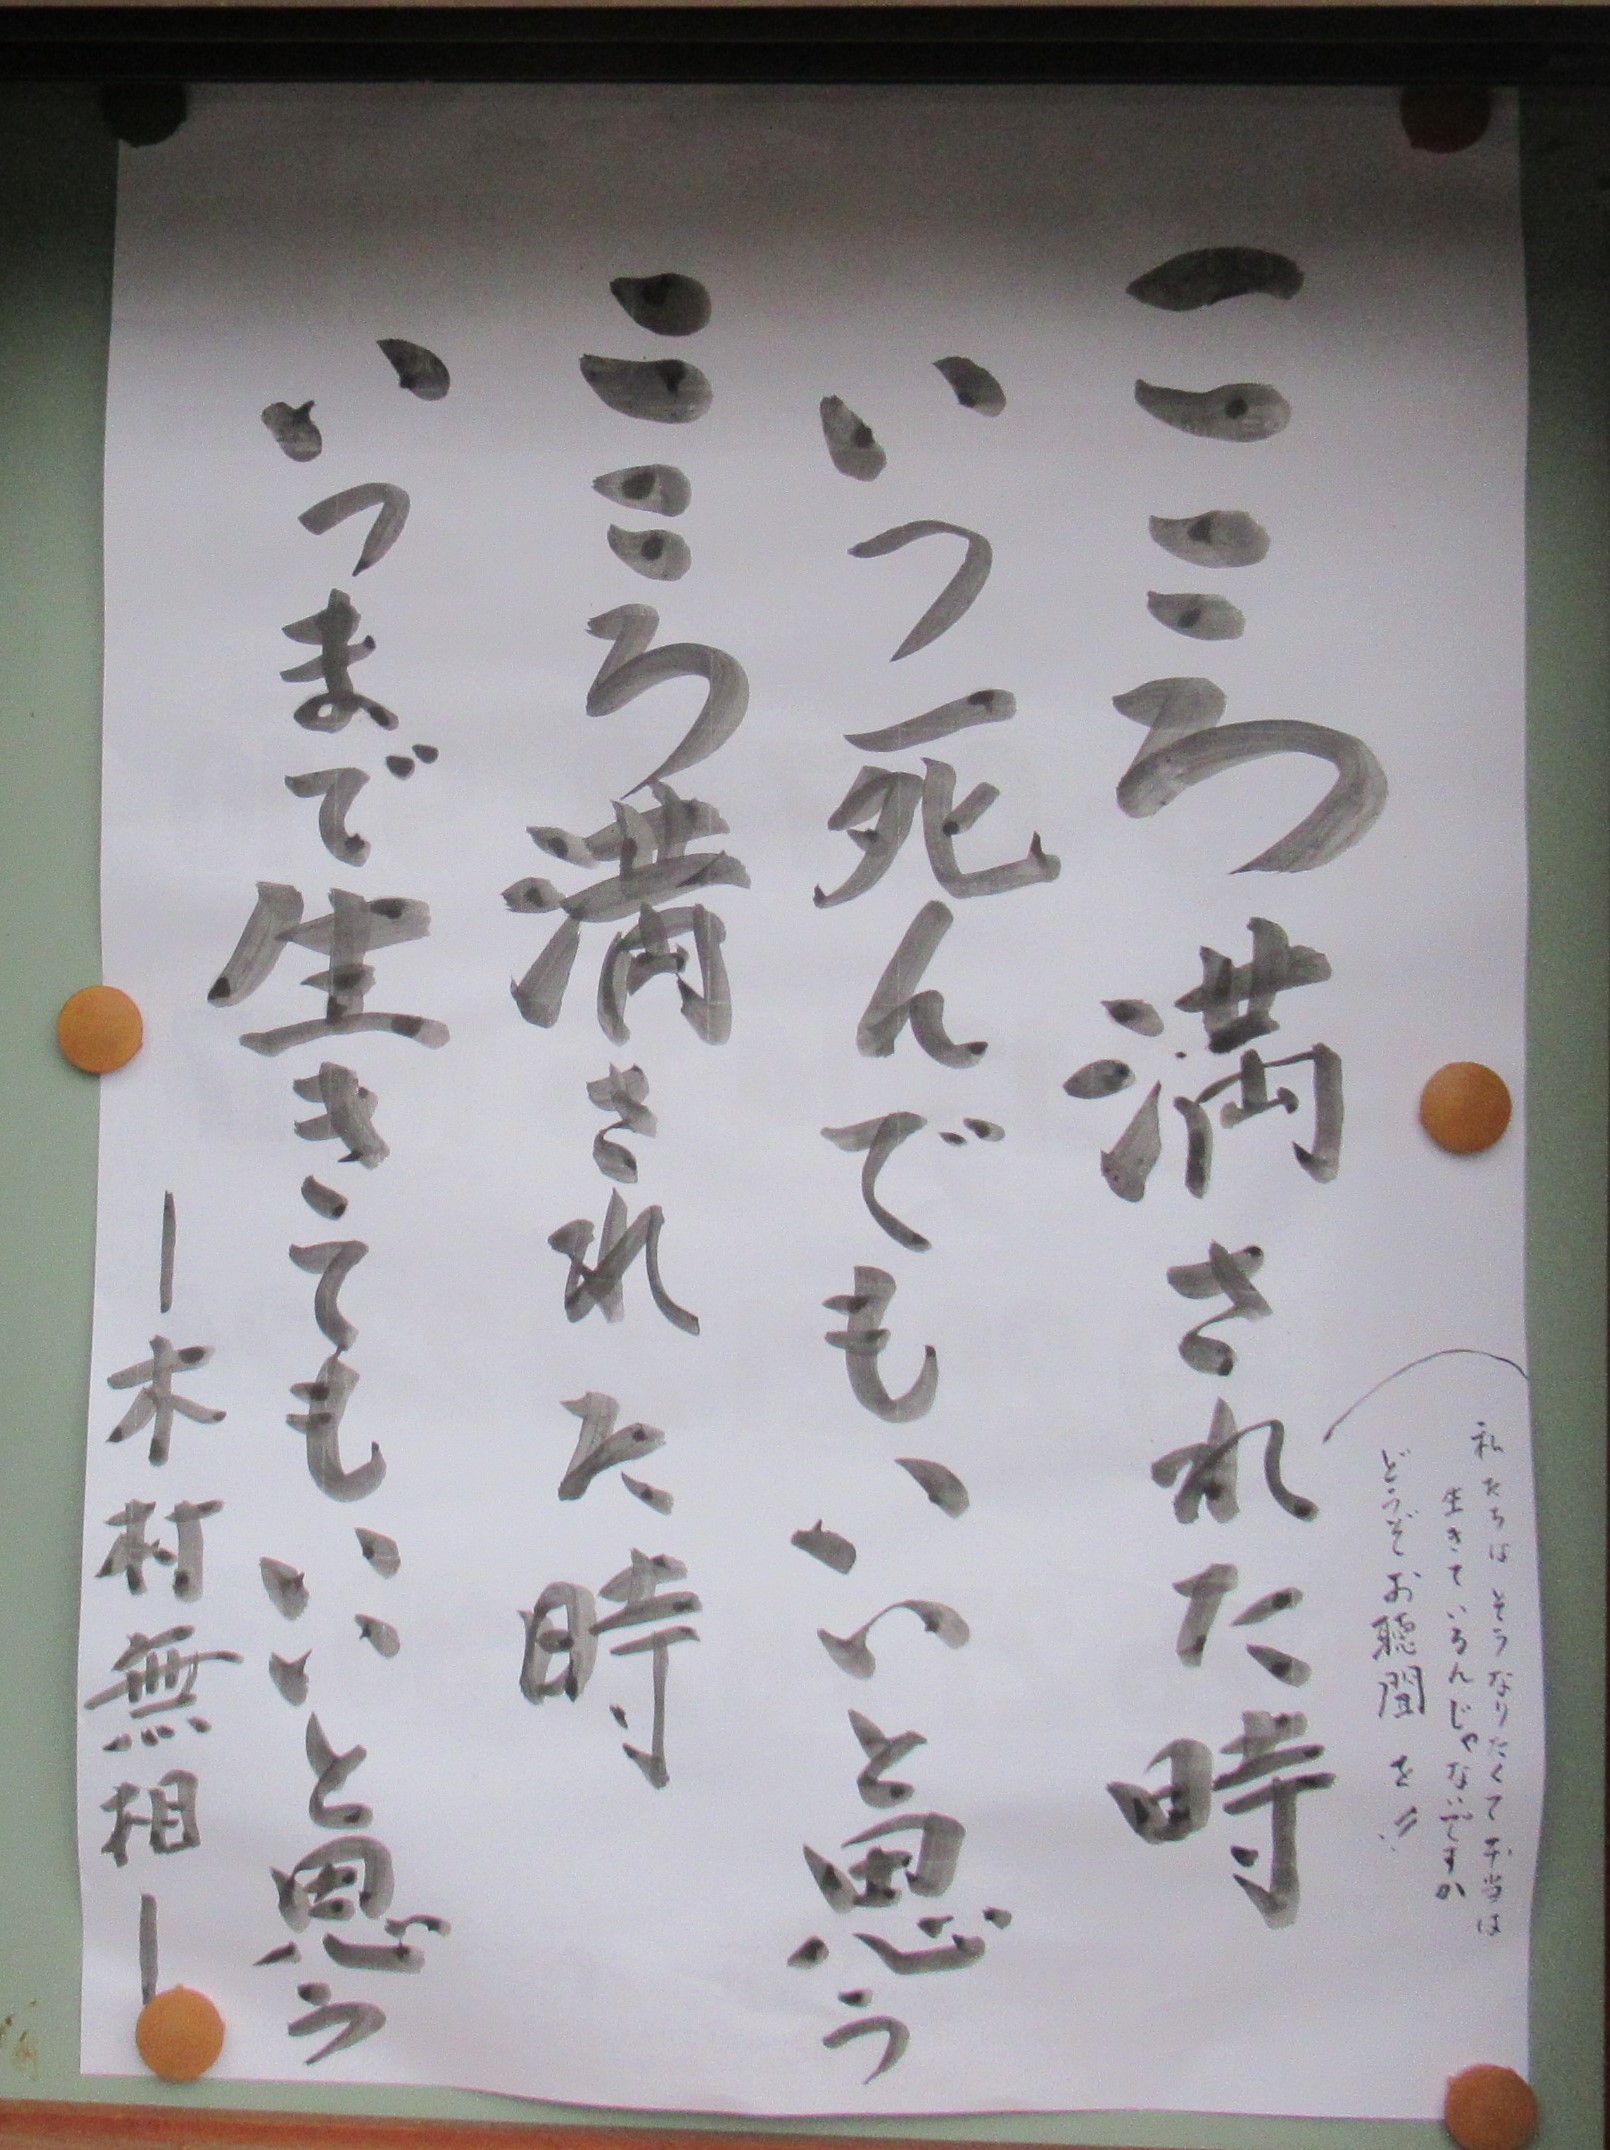 こころ満された時
いつ死んでも、いいと思う
こころ満された時
いつまで生きてもいいと思う
ー木村無相ー
私たちはそうなりたくて本当は
生きているんじゃないですか
どうぞお聴聞を!!